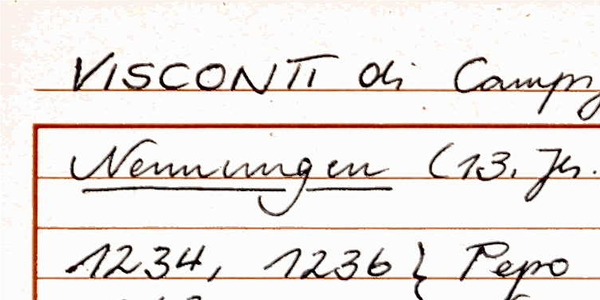 VISCONTI di Camp
Nennungen (13. Jh.
1234, 1236 } Pepo